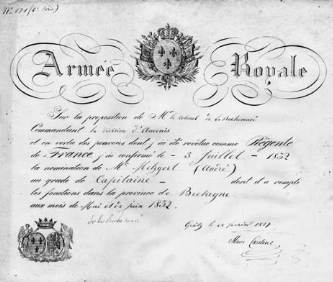 Armée Royale
Sur la proposition de Mr le
Commandant la division d'Ancenis
et en vertu des pouvoirs dont j'ai été revêtue comme Régente
de France, j'ai confirmé le - 3 Juillet - 1832
la nomination de Mr Miligeil (André)
au grade de Capitaine - dont il a rempli
les fonctions dans la province de Bretagne
aux mois de Mai et de juin 1832.
Marie Caroline